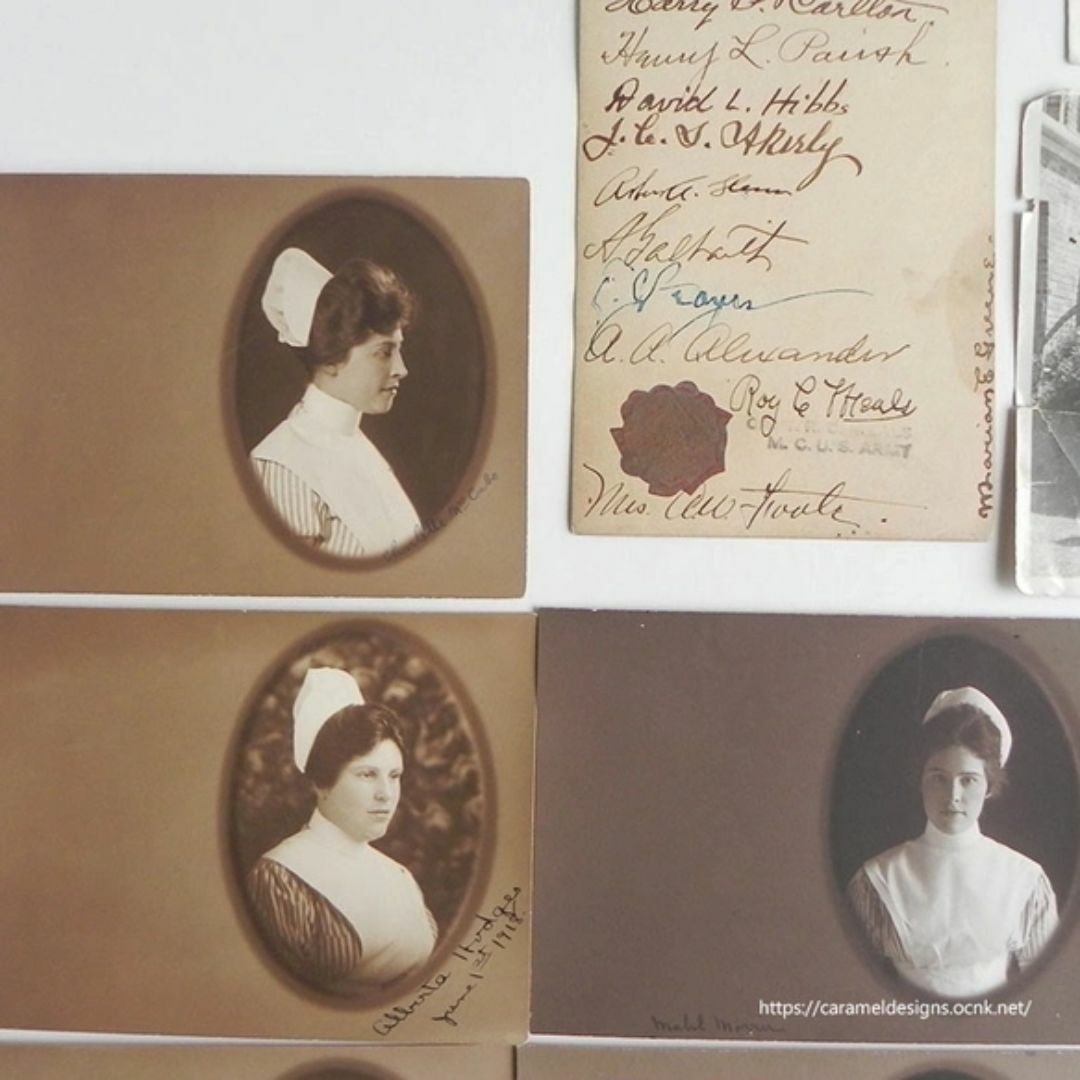 Harry P. Carlton.
Henry L. Parish.
David L. Hibbs
J. C. S. Akerly
A. Galbraith
A. A. Alexander
Roy C Meals
M. C. U. S. ARMY
Mrs. A.W. Foote.
Marian E Greene
McCabe
Alberta Hodges
June 1st 1918.
Mabel Morris
https://carameldesigns.ocnk.net/